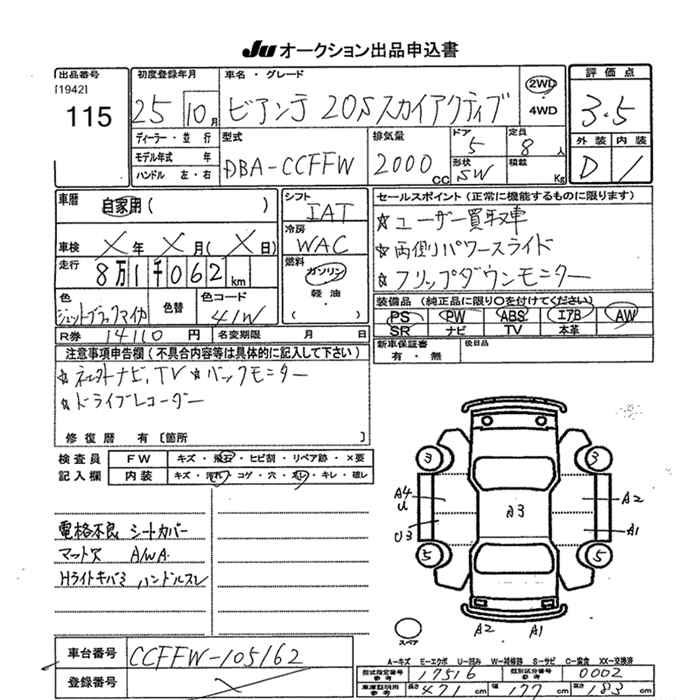 JU オークション出品申込書
出品番号 初度登録年月 車名・グレード 評価点
[1942]
115 25 10月 ビアンテ 20Sスカイアクティブ 2WD ・ 4WD 3.5
ディーラー・並行 型式 排気量 ドア 定員 外装 内装
モデル年式 年 DBA-CCFFW 2000CC 5 8人 D 1
ハンドル 左・右 形状 SW 積載 Kg
車歴 自家用( ) シフト IAT セールスポイント(正常に機能するものに限ります)
冷房 WAC ☆ユーザー買取車
車検 X年 X月(X日) ☆両側パワースライド
走行 8万1千062km 燃料 ガソリン・軽油・( ) ☆フリップダウンモニター
色 ジェットブラックマイカ 色替 色コード 41W
装備品(純正品に限り○を付けてください)
PS PW ABS エアB AW
SR ナビ TV 本革
R券 14110円 名変期限 月 日
新車保証書 有・無 後日品
注意事項申告欄(不具合内容等は具体的に記入して下さい)
☆ネクストナビ,TV ☆バックモニター
☆ドライブレコーダー
修復歴 有 [箇所 ]
検査員 FW キズ・飛石・ヒビ割・リペア跡・×要
記入欄 内装 キズ・汚れ・コゲ・穴・スレ・キレ・破レ
3 3
A4 A2
U A3
U3 A1
5 5
電格不良 シートカバー
マット欠 A/WA
Hライトキバミ ハンドルスレ
スペア A2 A1
A-キズ E-エクボ U-凹み W-補修跡 S-サビ C-腐食 XX-交換済
車台番号 CCFFW-105162
型式指定番号 参考 17516 類別区分番号 参考 0002
登録番号 X
車庫証明用 参考 長さ 471cm 幅 177cm 高さ 83cm